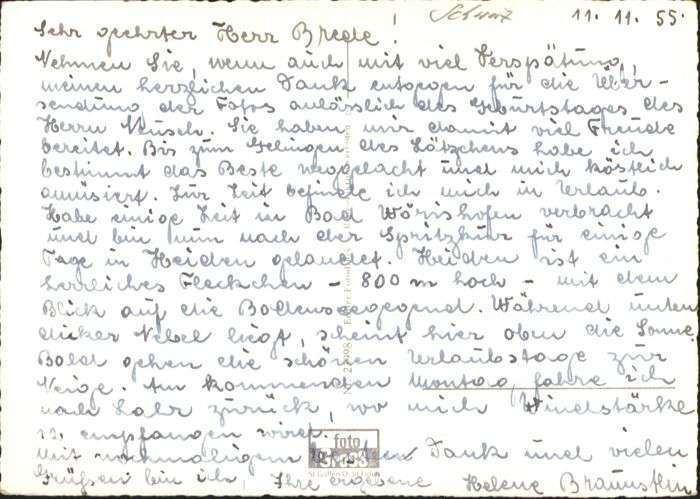 Schwarz 11. 11. 55.
Sehr geehrter Herr Brede!
Nehmen Sie, wenn auch mit viel Verspätung,
meinen herzlichen Dank entgegen für die Über-
sendung der Fotos anlässlich des Geburtstages des
Herrn Kusch. Sie haben mir damit viel Freude
bereitet. Bis zum Gelingen des Sätzchens habe ich
bestimmt das Beste weggelacht und mich köstlich
amüsiert. Zur Zeit befinde ich mich in Urlaub.
Habe einige Zeit in Bad Wörishofen verbracht
und bin nun nach der Spritzkur für einige
Tage in Heiden gelandet. Heiden ist ein
herrliches Fleckchen - 800 m hoch - mit dem
Blick auf die Bodenseegegend. Während unten
dicker Nebel liegt, scheint hier oben die Sonne.
Bald gehen die schönen Urlaubstage zur
Neige. Am kommenden Montag fahre ich
nach Lahr zurück, wo mich Windstärke
12 empfangen wird.
Mit nochmaligem Dank und vielen
Grüßen bin ich, Ihre ergebene Helene Braunstein
foto